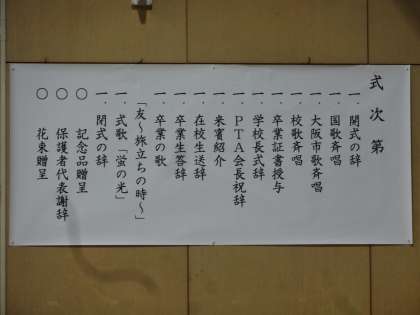 式次第
一．開式の辞
一．国歌斉唱
一．大阪市歌斉唱
一．校歌斉唱
一．卒業証書授与
一．学校長式辞
一．ＰＴＡ会長祝辞
一．来賓紹介
一．在校生送辞
一．卒業生答辞
一．卒業の歌
「友～旅立ちの時～」
一．式歌「蛍の光」
一．閉式の辞
○　記念品贈呈
○　保護者代表謝辞
○　花束贈呈